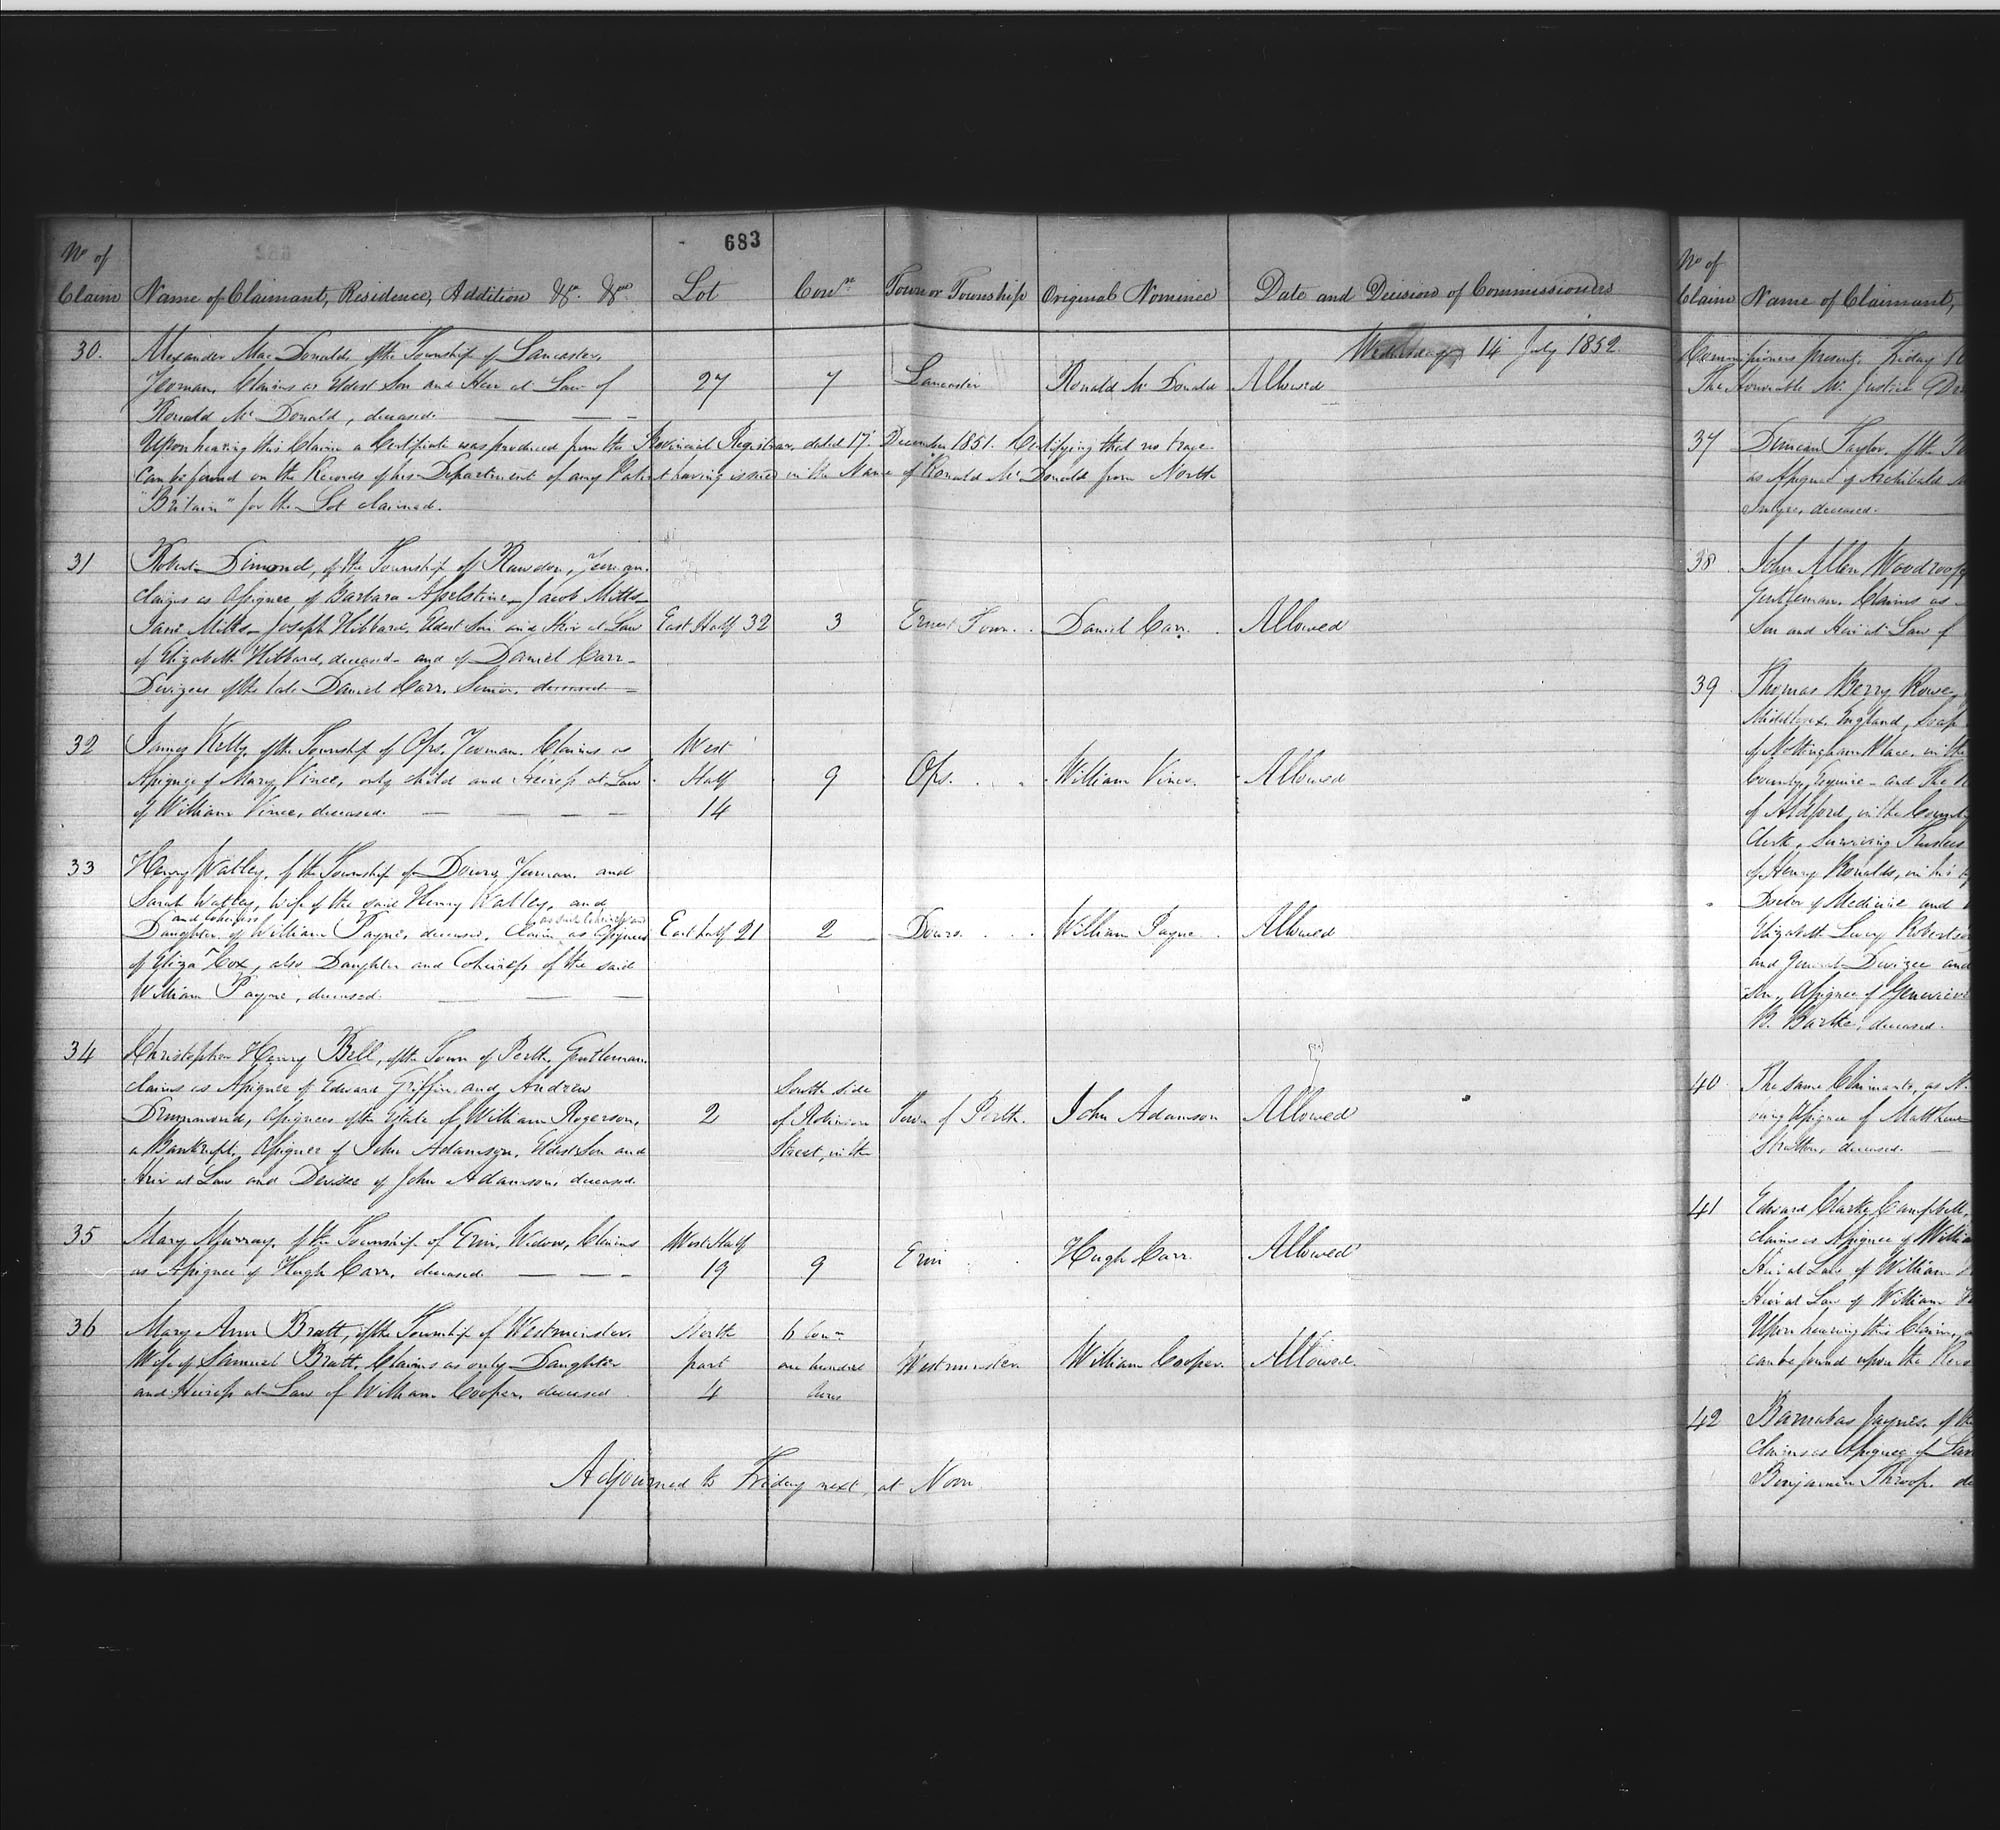 683
No of Claim | Name of Claimant, Residence, Addition &c. &c. | Lot | Conn | Town or Township | Original Nominee | Date and Decision of Commissioners
Wednesday 14 July 1852.
30. Alexander Mac Donald, of the Township of Lancaster,
Yeoman, Claims as Eldest Son and Heir at Law of | 27 | 7 | Lancaster | Ronald Mc Donald | Allowed
Ronald Mc Donald, deceased.
Upon hearing this Claim a Certificate was produced from the Provincial Registrar, dated 17. December 1851. Certifying that no trace
can be found on the Records of his Department of any Patent having issued in the Name of Ronald Mc Donald from North
"Britain" for the Lot claimed.
31 Robert Dimond, of the Township of Rawdon, Yeoman.
claims as Assignee of Barbara Asselstine - Jacob Mitts -
Jane Mitts - Joseph Hibbard, Eldest Son and Heir at Law | East Half 32 | 3 | Ernest Town | Daniel Carr. | Allowed
of Elizabeth Hibbard, deceased - and of Daniel Carr -
Devizees of the late Daniel Carr, Senior, deceased -
32 James Kelly, of the Township of Ops, Yeoman. Claims as | West
Assignee of Mary Vince, only child and Heiress at Law | Half | 9 | Ops. | William Vince. | Allowed
of William Vince, deceased. | 14
33 Henry Watley, of the Township of Douro, Yeoman and
Sarah Watley, Wife of the said Henry Watley, and
and Coheiress | as such Coheiress and
Daughter of William Payne, deceased, Claim as Assignees | East half 21 | 2 | Douro. | William Payne | Allowed
of Eliza Cox, also Daughter and Coheiress of the said
William Payne, deceased.
34 Christopher Henry Bell, of the Town of Perth, Gentleman.
claims as Assignee of Edward Griffin and Andrew | South side
Drummond, Assignees of the Estate of William Rogerson, | 2 | of Robinson | Town of Perth. | John Adamson | Allowed
a Bankrupt, Assignee of John Adamson, Eldest Son and | Street, in the
Heir at Law and Devisee of John Adamson, deceased.
35 Mary Murray, of the Township of Erin, Widow, Claims | West Half
as Assignee of Hugh Carr, deceased. | 19 | 9 | Erin | Hugh Carr | Allowed
36 Mary Ann Bratt, of the Township of Westminster | North | 6 Conn
Wife of Samuel Bratt. Claims as only Daughter | part | one hundred | Westminster | William Cooper. | Allowed.
and Heiress at Law of William Cooper, deceased. | 4 | Acres
Adjourned to Friday next, at Noon.
No of Claim | Name of Claimant,
Commissioners present, Friday
The Honorable Mr. Justice
37 Duncan Taylor, of the
as Assignee of Archibald
Intyre, deceased.
38 John Allen
Gentleman. Claims as
Son and Heir at Law of
39 Thomas Berry Rowe,
Middlesex, England,
of Nottingham Place, in the
County, Esquire - and The
of Aldford, in the County
Clerk, Surviving Trustees
of Henry Ronalds, in his
Doctor of Medicine and
Elizabeth Lucy
and General Devizee and
Assignee of
deceased.
40 The same Claimants, as
Assignee of Matthew
Stratton, deceased.
41 Edward Clarke Campbell,
claims as Assignee of
Heir at Law of William
Heir at Law of William
Upon hearing this Claim,
can be found upon the
42 Barnabas Jaynes, of the
Claims as Assignee of
Benjamin Throop,